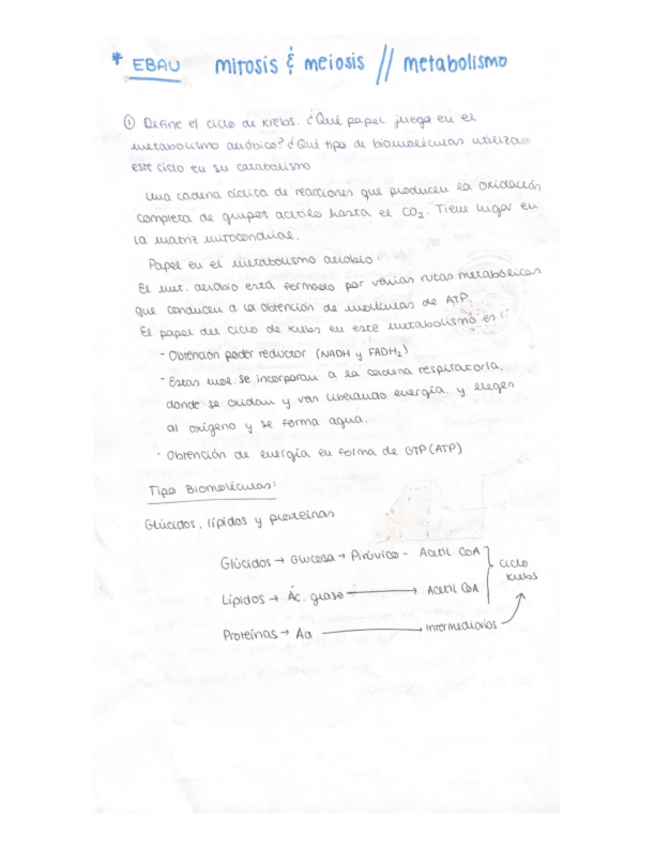 * EBAU mitosis & meiosis // metabolismo
① Define el ciclo de Krebs. ¿Qué papel juega en el
metabolismo aeróbico? ¿Qué tipo de biomoléculas utiliza
este ciclo en su catabolismo
Una cadena cíclica de reacciones que producen la oxidación
completa de grupos acetilo hasta el CO₂. Tiene lugar en
la matriz mitocondrial.
Papel en el metabolismo aerobio.
El met. aerobio está formado por varias rutas metabólicas
que conducen a la obtención de moléculas de ATP.
El papel del ciclo de Krebs en este metabolismo es:
- Obtención poder reductor (NADH y FADH₂)
- Estas mol. se incorporan a la cadena respiratoria,
donde se oxidan y van liberando energía, y llegan
al oxígeno y se forma agua.
- Obtención de energía en forma de GTP (ATP)
Tipo Biomoléculas:
Glúcidos, lípidos y proteínas
Glúcidos → Glucosa → Pirúvico - Acetil CoA
Ciclo Krebs
Lípidos → Ác. graso → Acetil CoA
Proteínas → Aa → Intermediarios